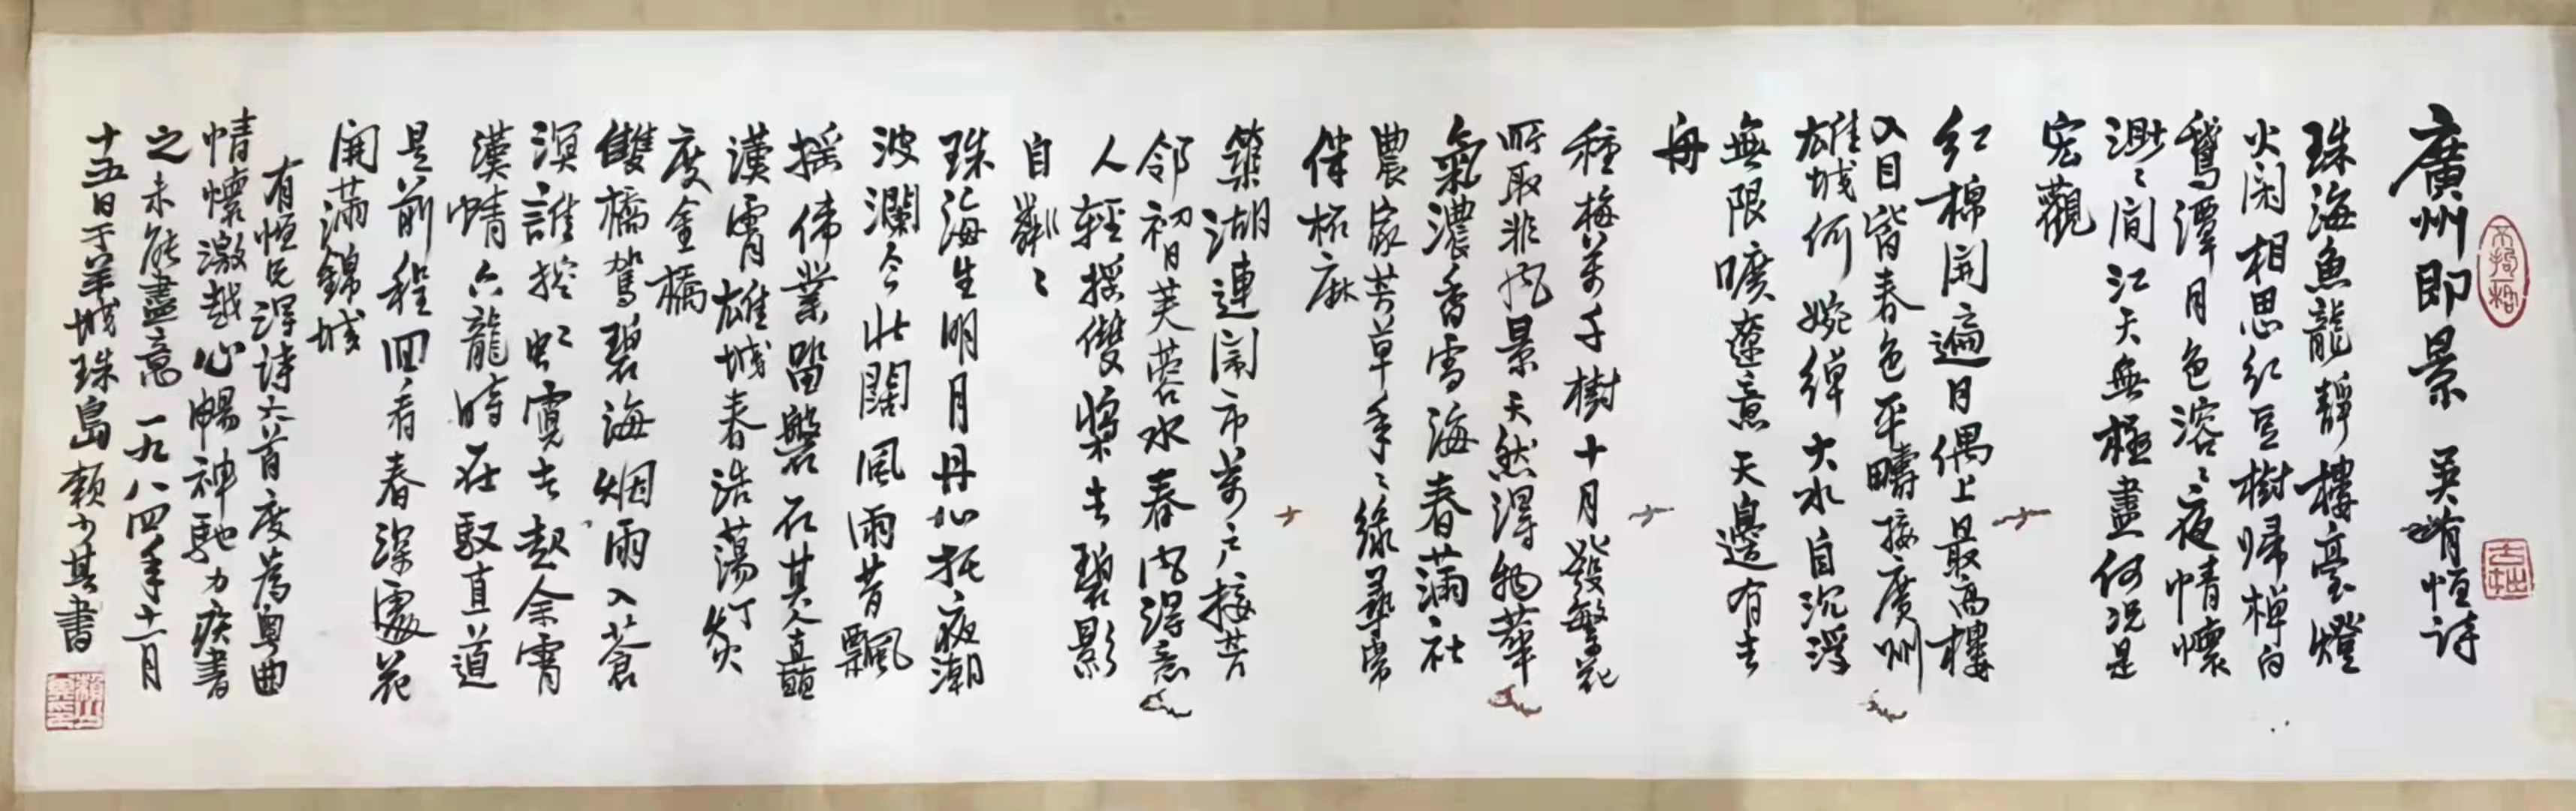 廣州即景 吴有恒诗
珠海魚龍靜樓臺燈
火闲相思红豆樹归棹白
鵞潭月色溶〻夜情懷
渺〻间江天無極盡何况是
宏觀
红棉開遍日偶上最高樓
入目皆春色平疇接廣州
雄城何婉綽大水自沉浮
無限曠遼意天邊有去
舟
種梅萬千樹十月發繁花
所取非風景天然得物華
氣濃香雪海春滿社
農家芳草年〻绿寻常
伴柘麻
築湖連闹市萬户接芳
邻初日芙蓉水春风得意
人輕摇雙槳去碧影
自粼〻
珠海生明月丹心托夜潮
波瀾今壮闊風雨昔飄
摇偉業留磐石其人直
漢霄雄城春浩蕩灯火
度金橋
雙橋駕碧海烟雨入蒼
溟誰控虹霓去起余霄
漢情六龍時在馭直道
是前程回看春深處花
開滿錦城
有恒兄得诗六首度為粤曲
情懷激越心暢神馳力疾書
之未能盡意 一九八四年十一月
十五日于羊城珠島 賴少其書